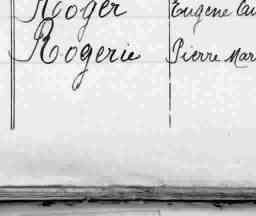 Roger Eugène
Rogerie Pierre Mar